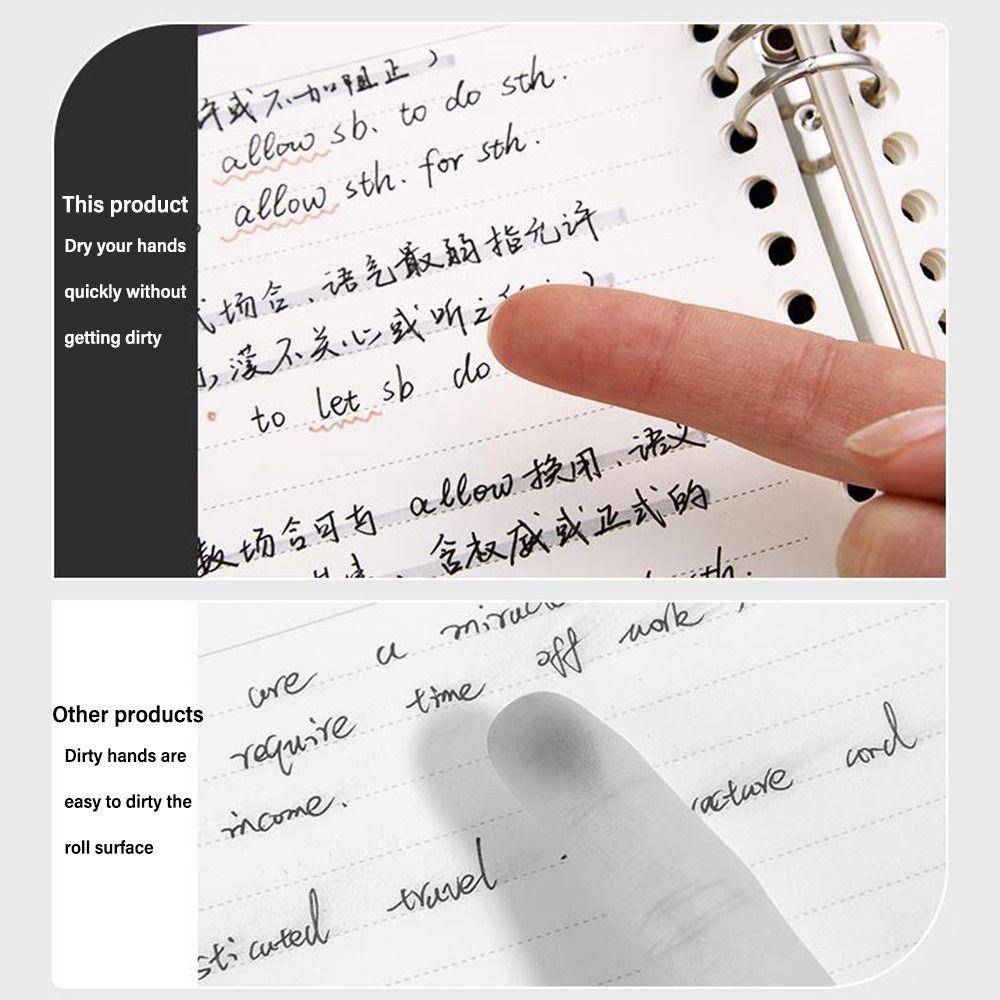 This product
Dry your hands
quickly without
getting dirty
许或不加阻止）
allow sb. to do sth.
allow sth. for sth.
式场合、语气最弱指允许
，漠不关心或听之
to let sb do
数场合可与 allow 换用、语义
含权威或正式的
sth.
Other products
Dirty hands are
easy to dirty the
roll surface
are a miracle
require time off work
income.
acture cord
sticated travel